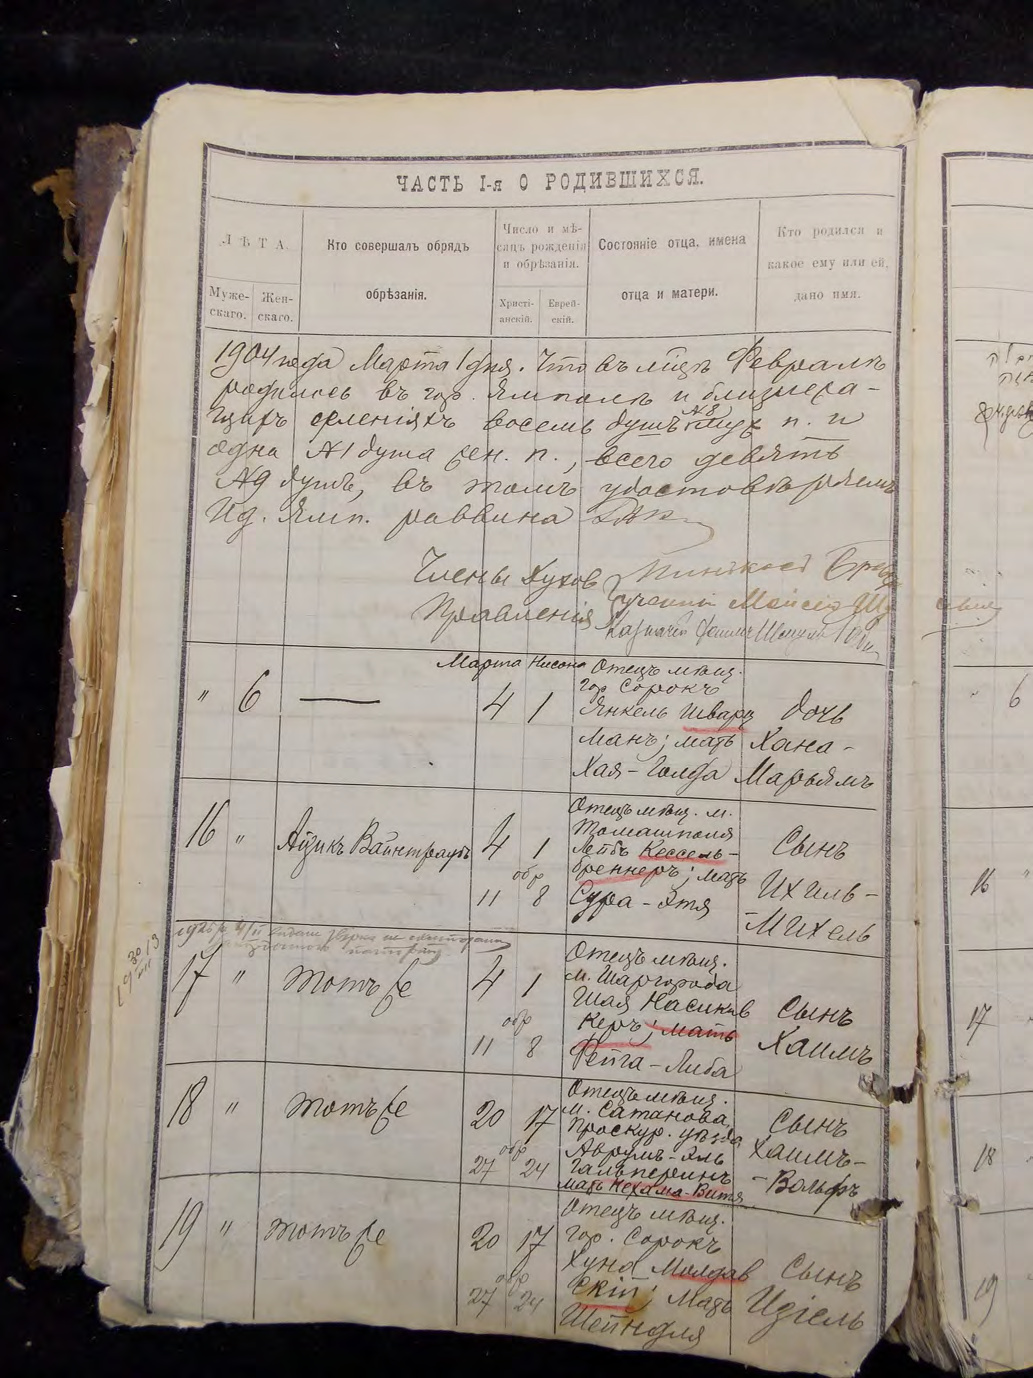 ЧАСТЬ I-я О РОДИВШИХСЯ.
ЛѢТА.
Муже-
скаго.
Жен-
скаго.
Кто совершалъ обрядъ
обрѣзанія.
Число и мѣ-
сяцъ рожденія
и обрѣзанія.
Христі-
анскій.
Еврей-
скій.
Состояніе отца, имена
отца и матери.
Кто родился и
какое ему или ей,
дано имя.
1904 года Марта 1 дня. Что въ мѣсяцѣ Февралѣ
родилось въ гор. Ямполѣ и близлежа-
щихъ селеніяхъ восемь душъ №8 муж. п. и
одна №1 душа жен. п., всего девять
№9 душъ, въ томъ удостовѣряемъ
И.д. Ямп. раввина
Члены Духов
Правленія
Марта Нисона
" 6 — 4 1
Отецъ мѣщ.
гор. Сорокъ
Янкель Шварц
манъ; мать
Хая-Голда
дочь
Хана-
Марьямъ
16 " Айзикъ Вайнтраубъ 4 1
обр
11 8
Отецъ мѣщ. м.
Томашполя
Лейбъ Кессель-
бреннеръ; мать
Сура-Этя
Сынъ
Ихиль-
-Михель
17 " Тотъ же 4 1
обр
11 8
Отецъ мѣщ.
м. Шаргорода
Шая Насинов
керъ; мать
Фейга-Либа
Сынъ
Хаимъ
18 " Тотъ же 20 17
обр
27 24
Отецъ мѣщ.
м. Сатанова,
Проскур. уѣзда
Аврумъ-Эль
Гальперинъ
мать Нехама-Витя
Сынъ
Хаимъ-
-Вольфъ
19 " Тотъ же 20 17
обр
27 24
Отецъ мѣщ.
гор. Сорокъ
Хуна Молдав
скій; мать
Шейндля
Сынъ
Идзель
6
16
17
18
19